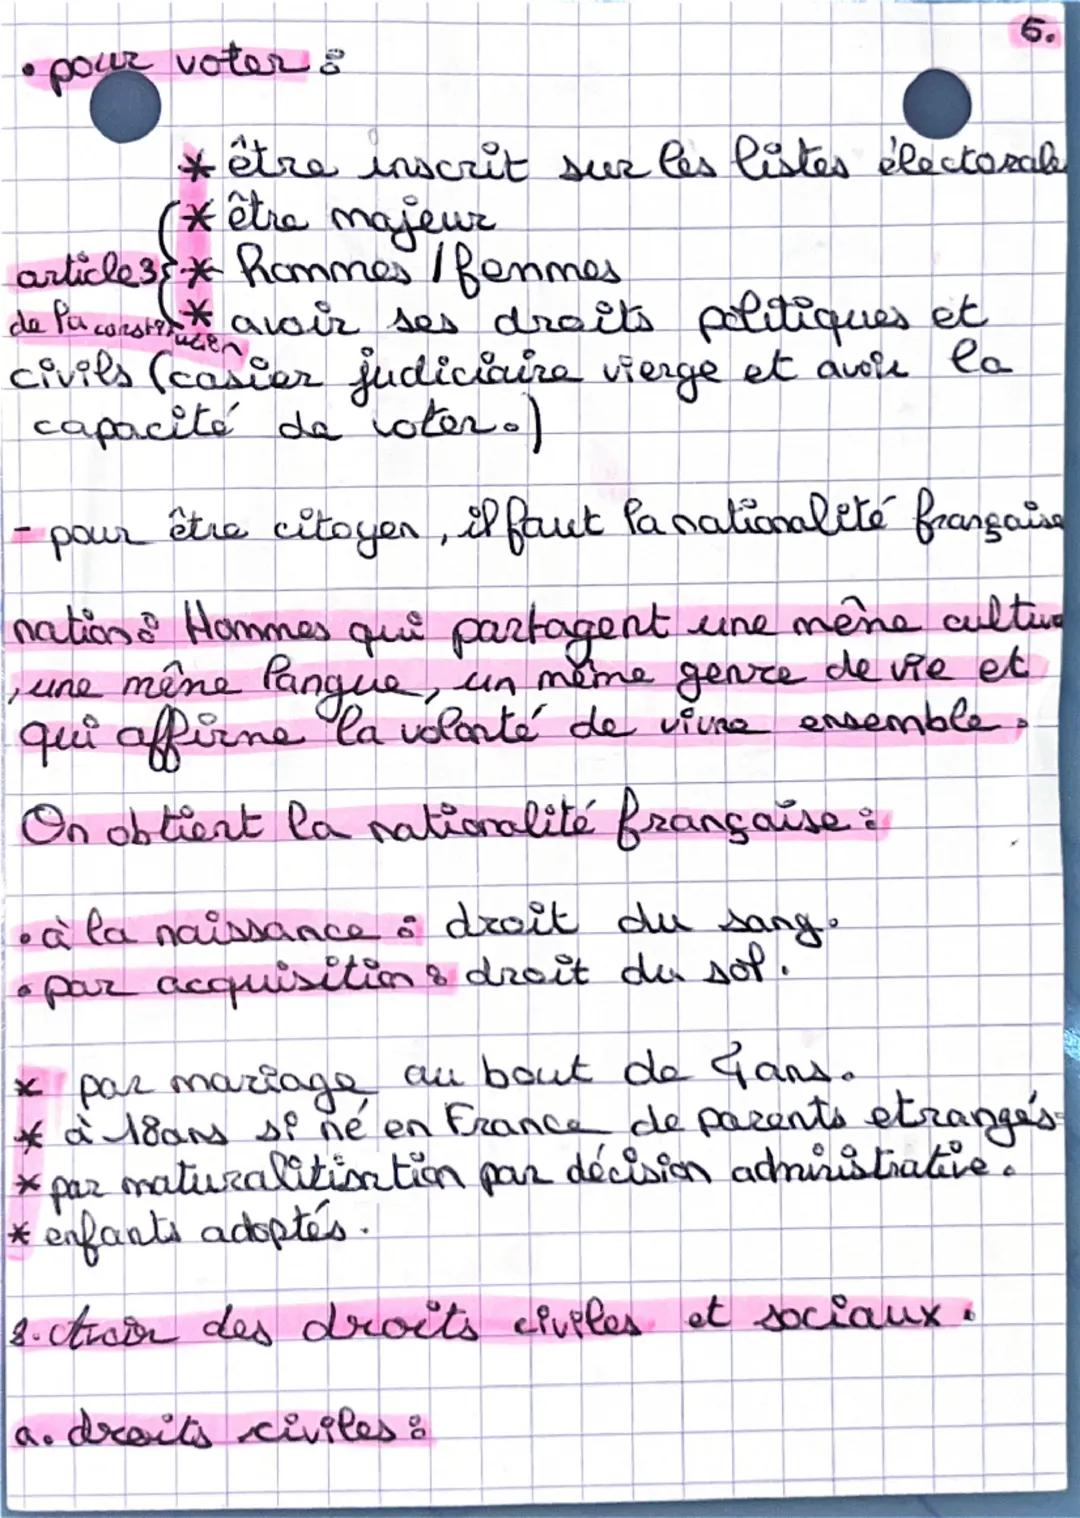 5.
• pour voter :
* être inscrit sur les listes électorale
* être majeur
article 3 * Hommes / femmes
de la constitution * avoir ses droits politiques et
civils (casier judiciaire vierge et avoir la
capacité de voter.)
- pour être citoyen, il faut la nationalité française
nation : Hommes qui partagent une même cultu
, une même langue, un même genre de vie et
qui affirme la volonté de vivre ensemble.
On obtient la nationalité française :
• à la naissance : droit du sang.
• par acquisition : droit du sol.
* par mariage au bout de 4 ans.
* à 18 ans si né en France de parents etrangés
* par décision administrative.
* enfants adoptés.
des droits civiles et sociaux.
a. droits civiles :